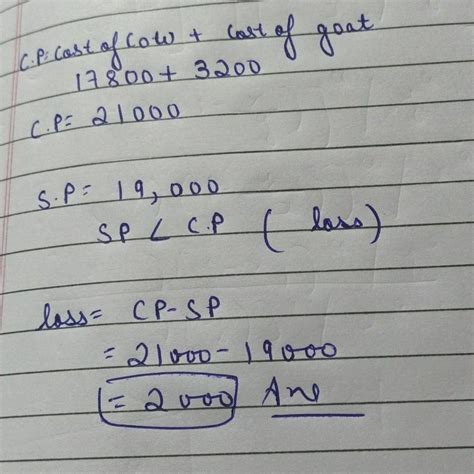 C.P: Cost of Cow + Cost of goat
17800 + 3200
C.P = 21000
S.P = 19,000
SP < C.P ( loss )
loss = CP-SP
= 21000 - 19000
= 2000 Ans